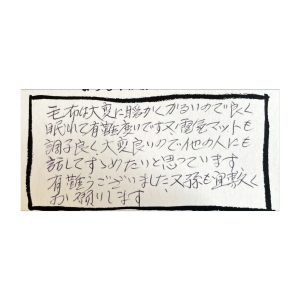 毛布は大変に暖かくかるいので良く
眠れて有難度いです又電気マットも
調子良く大変良いので他の人にも
話してすゝめたいと思っています
有難うございました又孫も宜敷く
お願いします